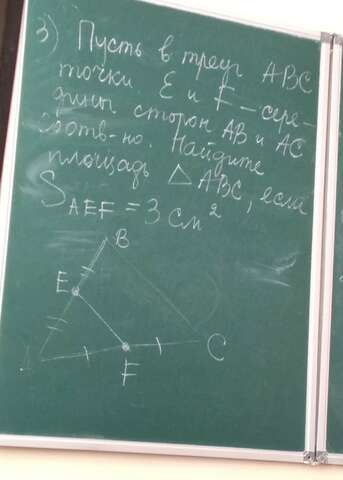 3) Пусть в треуг ABC
точки E и F - сере-
дины сторон AB и AC
соотв-но. Найдите
площадь △ ABC, если
S AEF = 3 см²
B
E
A
F
C